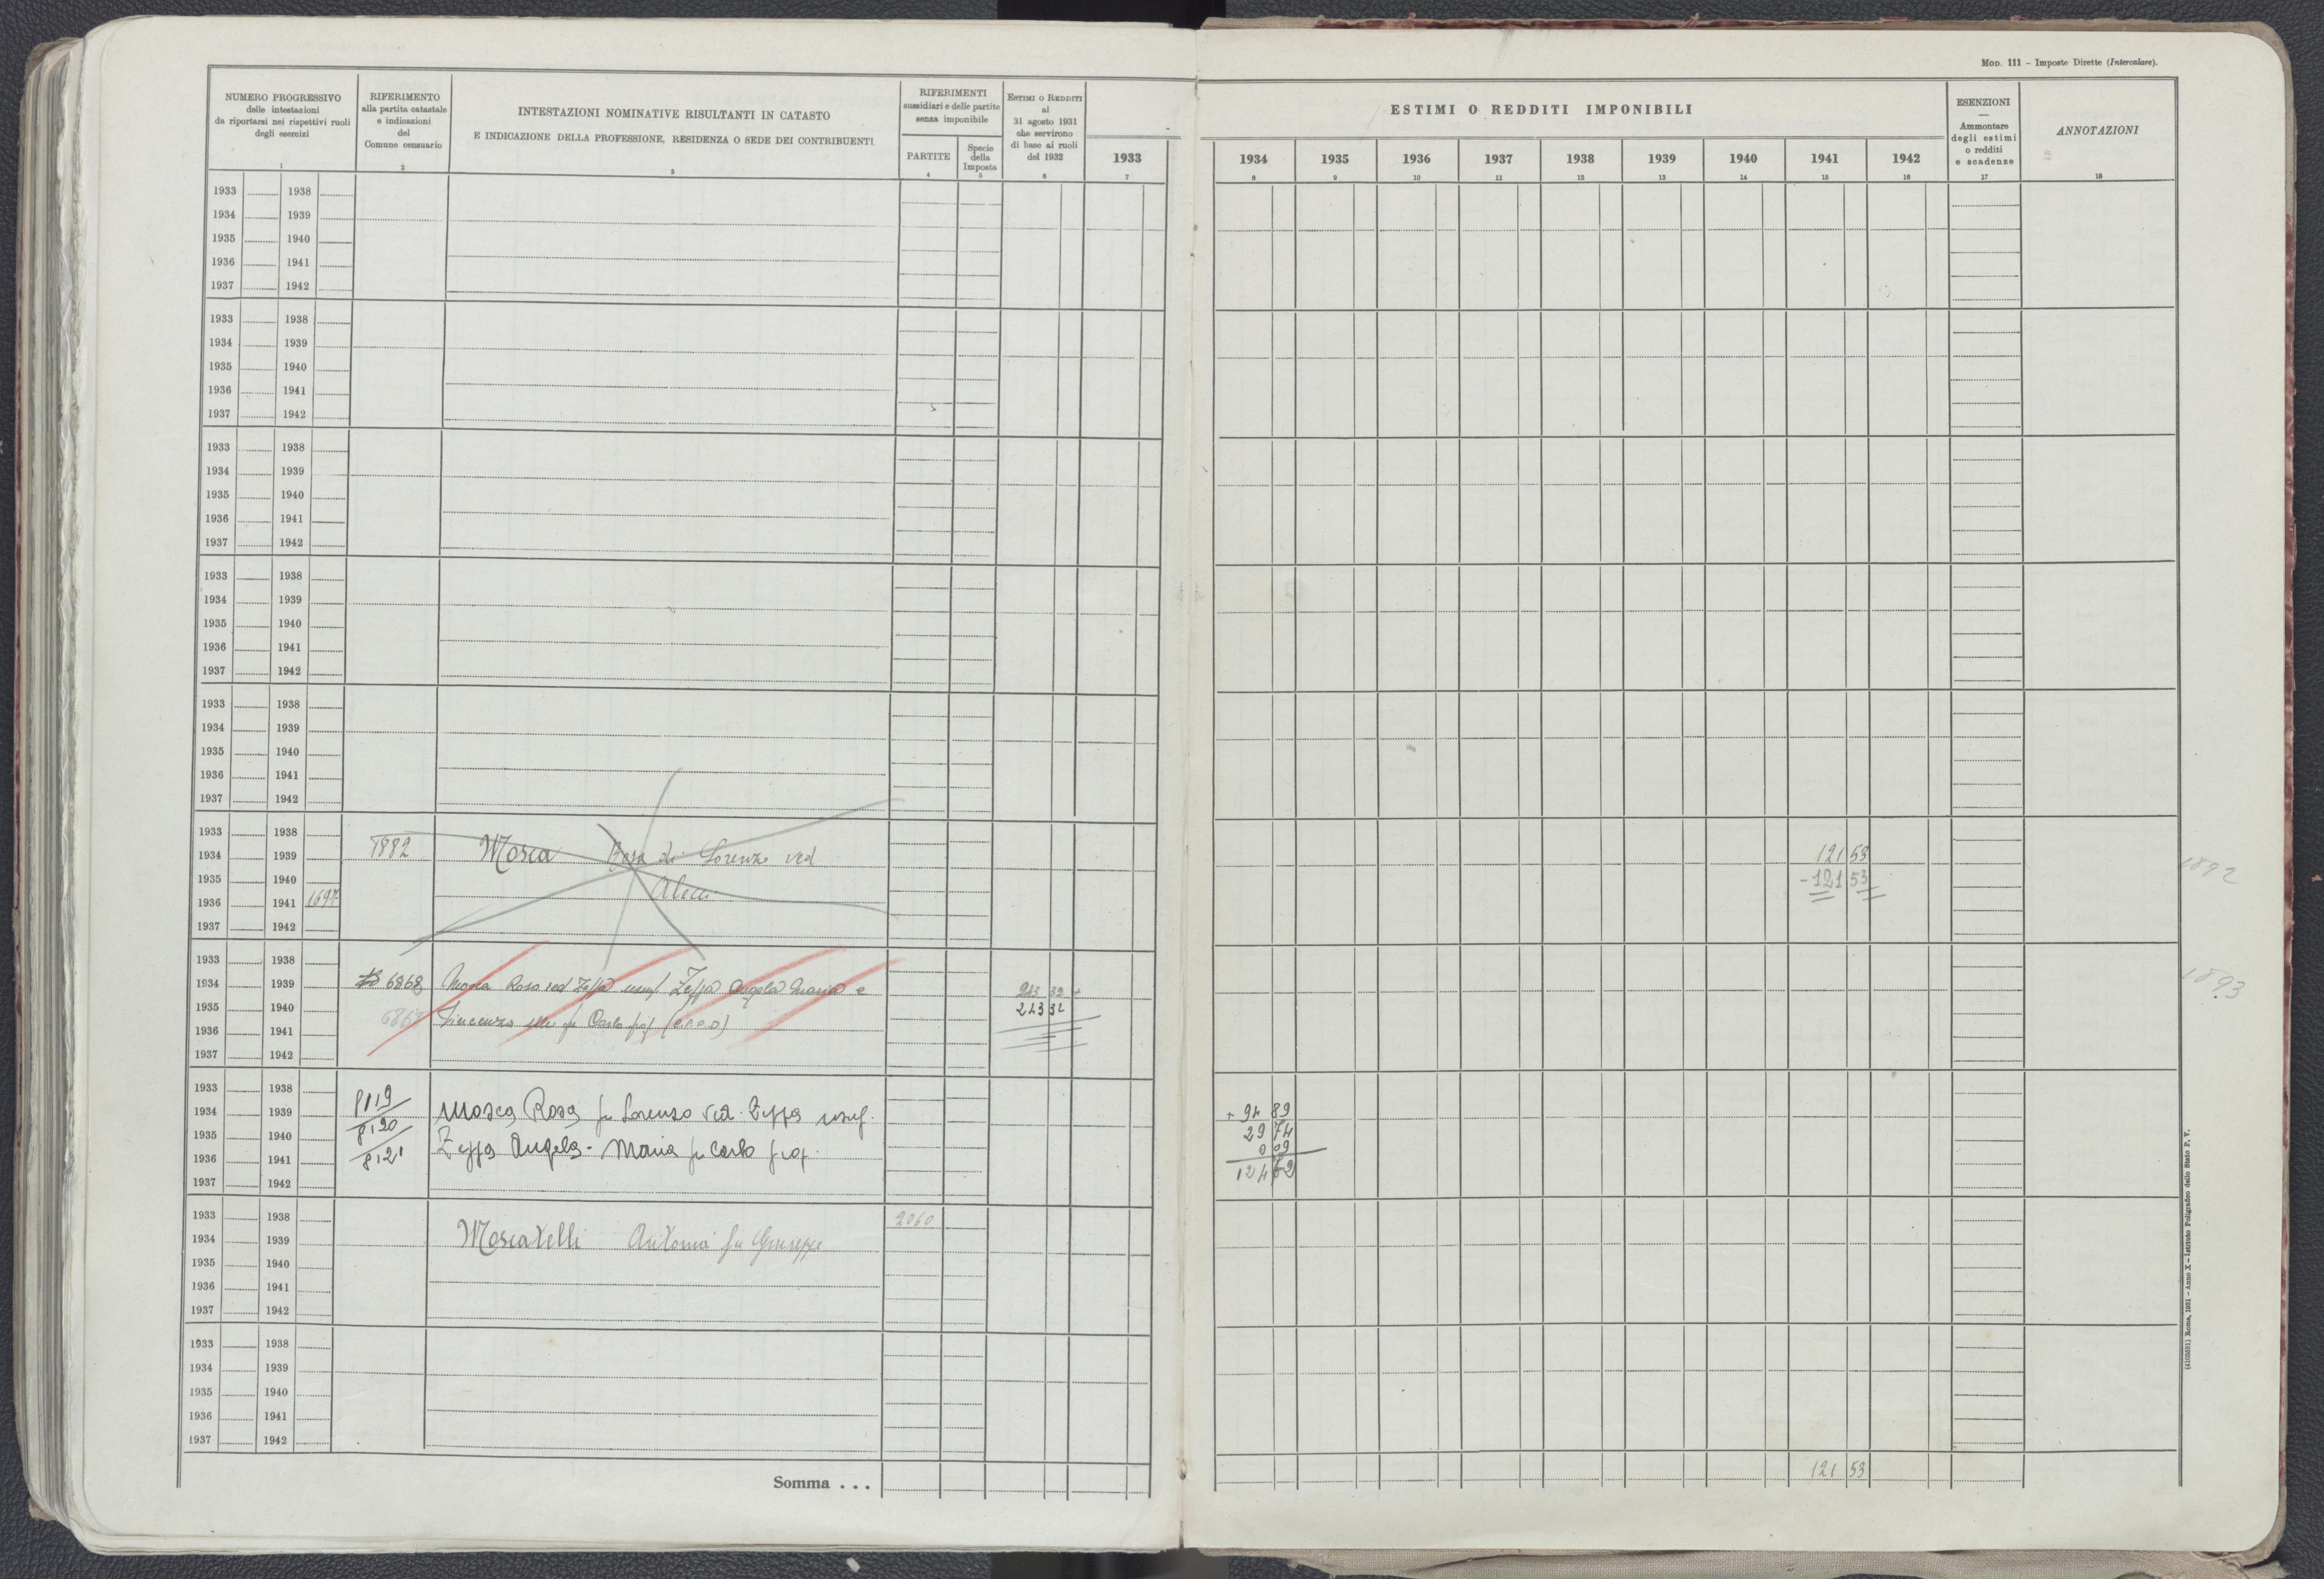 Mod. 111 – Imposte Dirette (Intercalare).
NUMERO PROGRESSIVO
delle intestazioni
da riportarsi nei rispettivi ruoli
degli esercizi
1
RIFERIMENTO
alla partita catastale
e indicazioni
del
Comune censuario
2
INTESTAZIONI NOMINATIVE RISULTANTI IN CATASTO
E INDICAZIONE DELLA PROFESSIONE, RESIDENZA O SEDE DEI CONTRIBUENTI
3
RIFERIMENTI
sussidiari e delle partite
senza imponibile
PARTITE
4
Specie
della
Imposta
5
Estimi o Redditi
al
31 agosto 1931
che servirono
di base ai ruoli
del 1932
6
1933
7
ESTIMI O REDDITI IMPONIBILI
1934 1935 1936 1937 1938 1939 1940 1941 1942
8 9 10 11 12 13 14 15 16
ESENZIONI
—
Ammontare
degli estimi
o redditi
e scadenze
17
ANNOTAZIONI
18
1933 1938
1934 1939
1935 1940
1936 1941
1937 1942
1933 1938
1934 1939
1935 1940
1936 1941
1937 1942
1933 1938
1934 1939
1935 1940
1936 1941
1937 1942
1933 1938
1934 1939
1935 1940
1936 1941
1937 1942
1933 1938
1934 1939
1935 1940
1936 1941
1937 1942
1933 1938
1934 1939 1882 Mosca Rosa di Lorenzo ved 121 53 1892
1935 1940 - 121 53
1936 1941 1697
1937 1942
1933 1938
1934 1939 6868 Mosca Rosa ved Zeppa usuf Zeppa Angela Maria e 243 32 + 1893
1935 1940 6868 Vincenzo fu Carlo 243 32
1936 1941
1937 1942
1933 1938
1934 1939 8119 Mosca Rosa fu Lorenzo ved. Zeppa usuf. + 94 89
1935 1940 8120 29 74
1936 1941 8121 Zeppa Angela-Maria fu Carlo prop. 0 09
1937 1942 124 62
1933 1938 2060
1934 1939 Moscatelli Antonia fu Giuseppe
1935 1940
1936 1941
1937 1942
1933 1938
1934 1939
1935 1940
1936 1941
1937 1942
Somma . . . 121 53
Roma, 1931 – Anno X – Istituto Poligrafico dello Stato P. V.